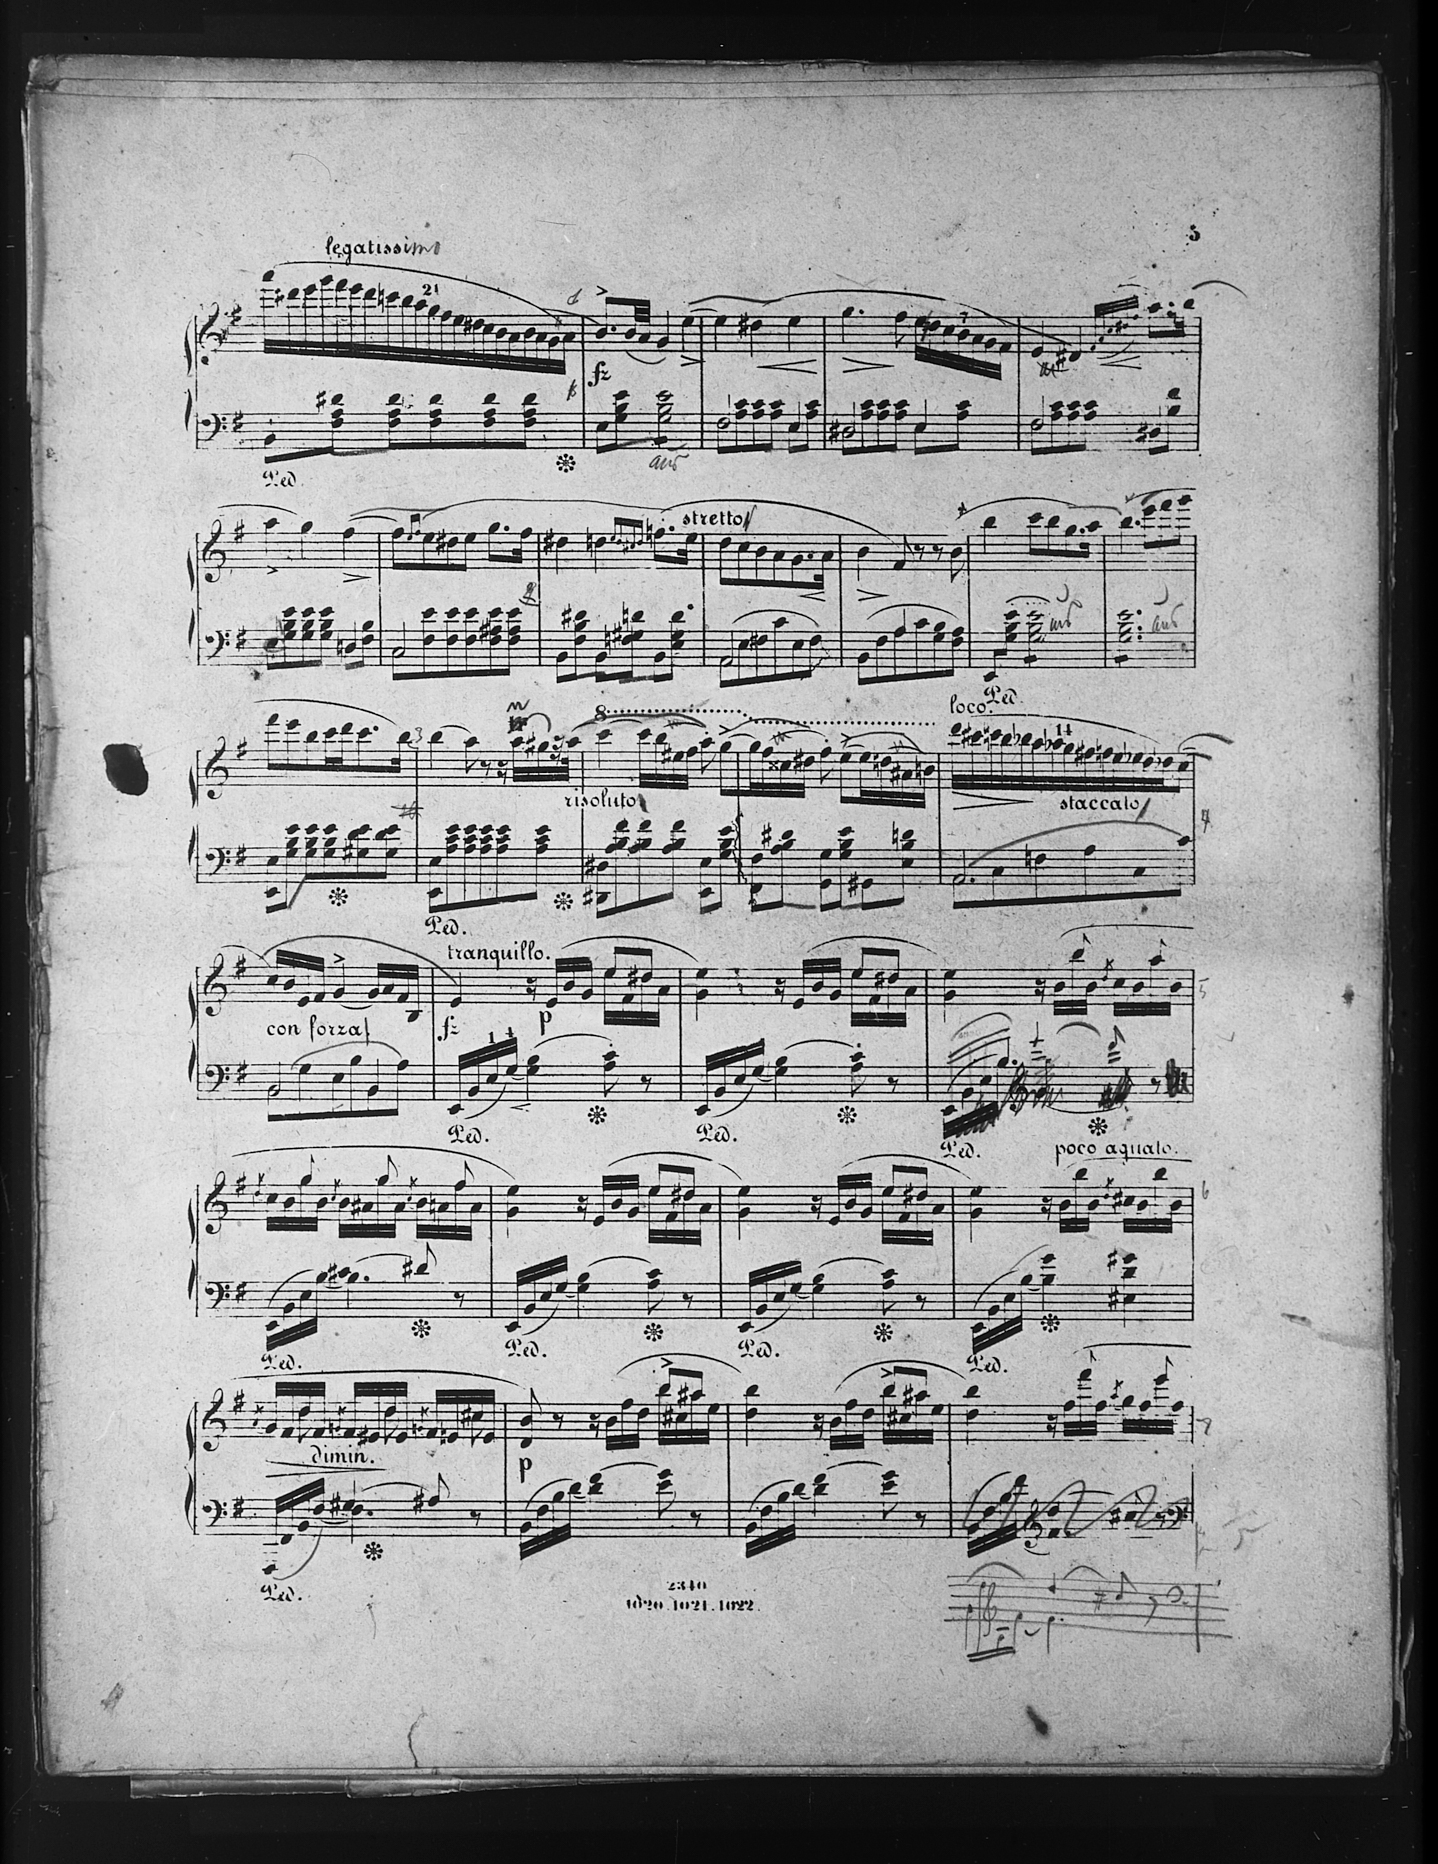 5
legatissimo
21
fz
7
Ped.
aus
stretto
aus
aus
Ped.
8
loco.
14
risoluto
staccato
Ped.
tranquillo.
con forza
fz
p
1 4
Ped.
Ped.
Ped.
5
poco aguato.
6
Ped.
Ped.
Ped.
Ped.
dimin.
p
Ped.
2340
1620.1621.1622.